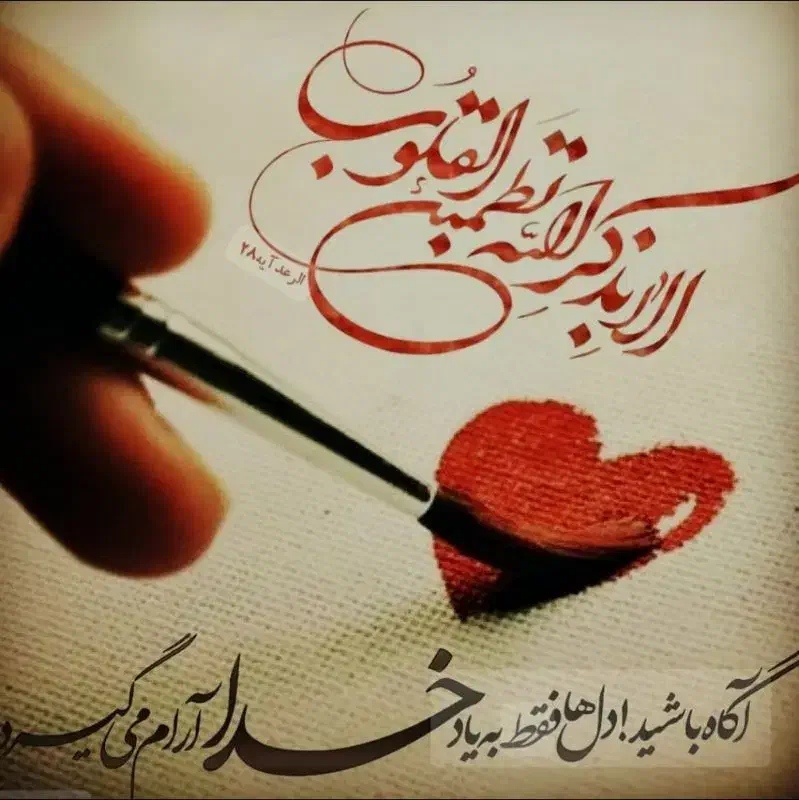 الا بذکر الله تطمئن القلوبُ
الرعد آیه ۲۸
آگاه باشید! دل‌ها فقط به یاد خدا آرام می‌گیرد